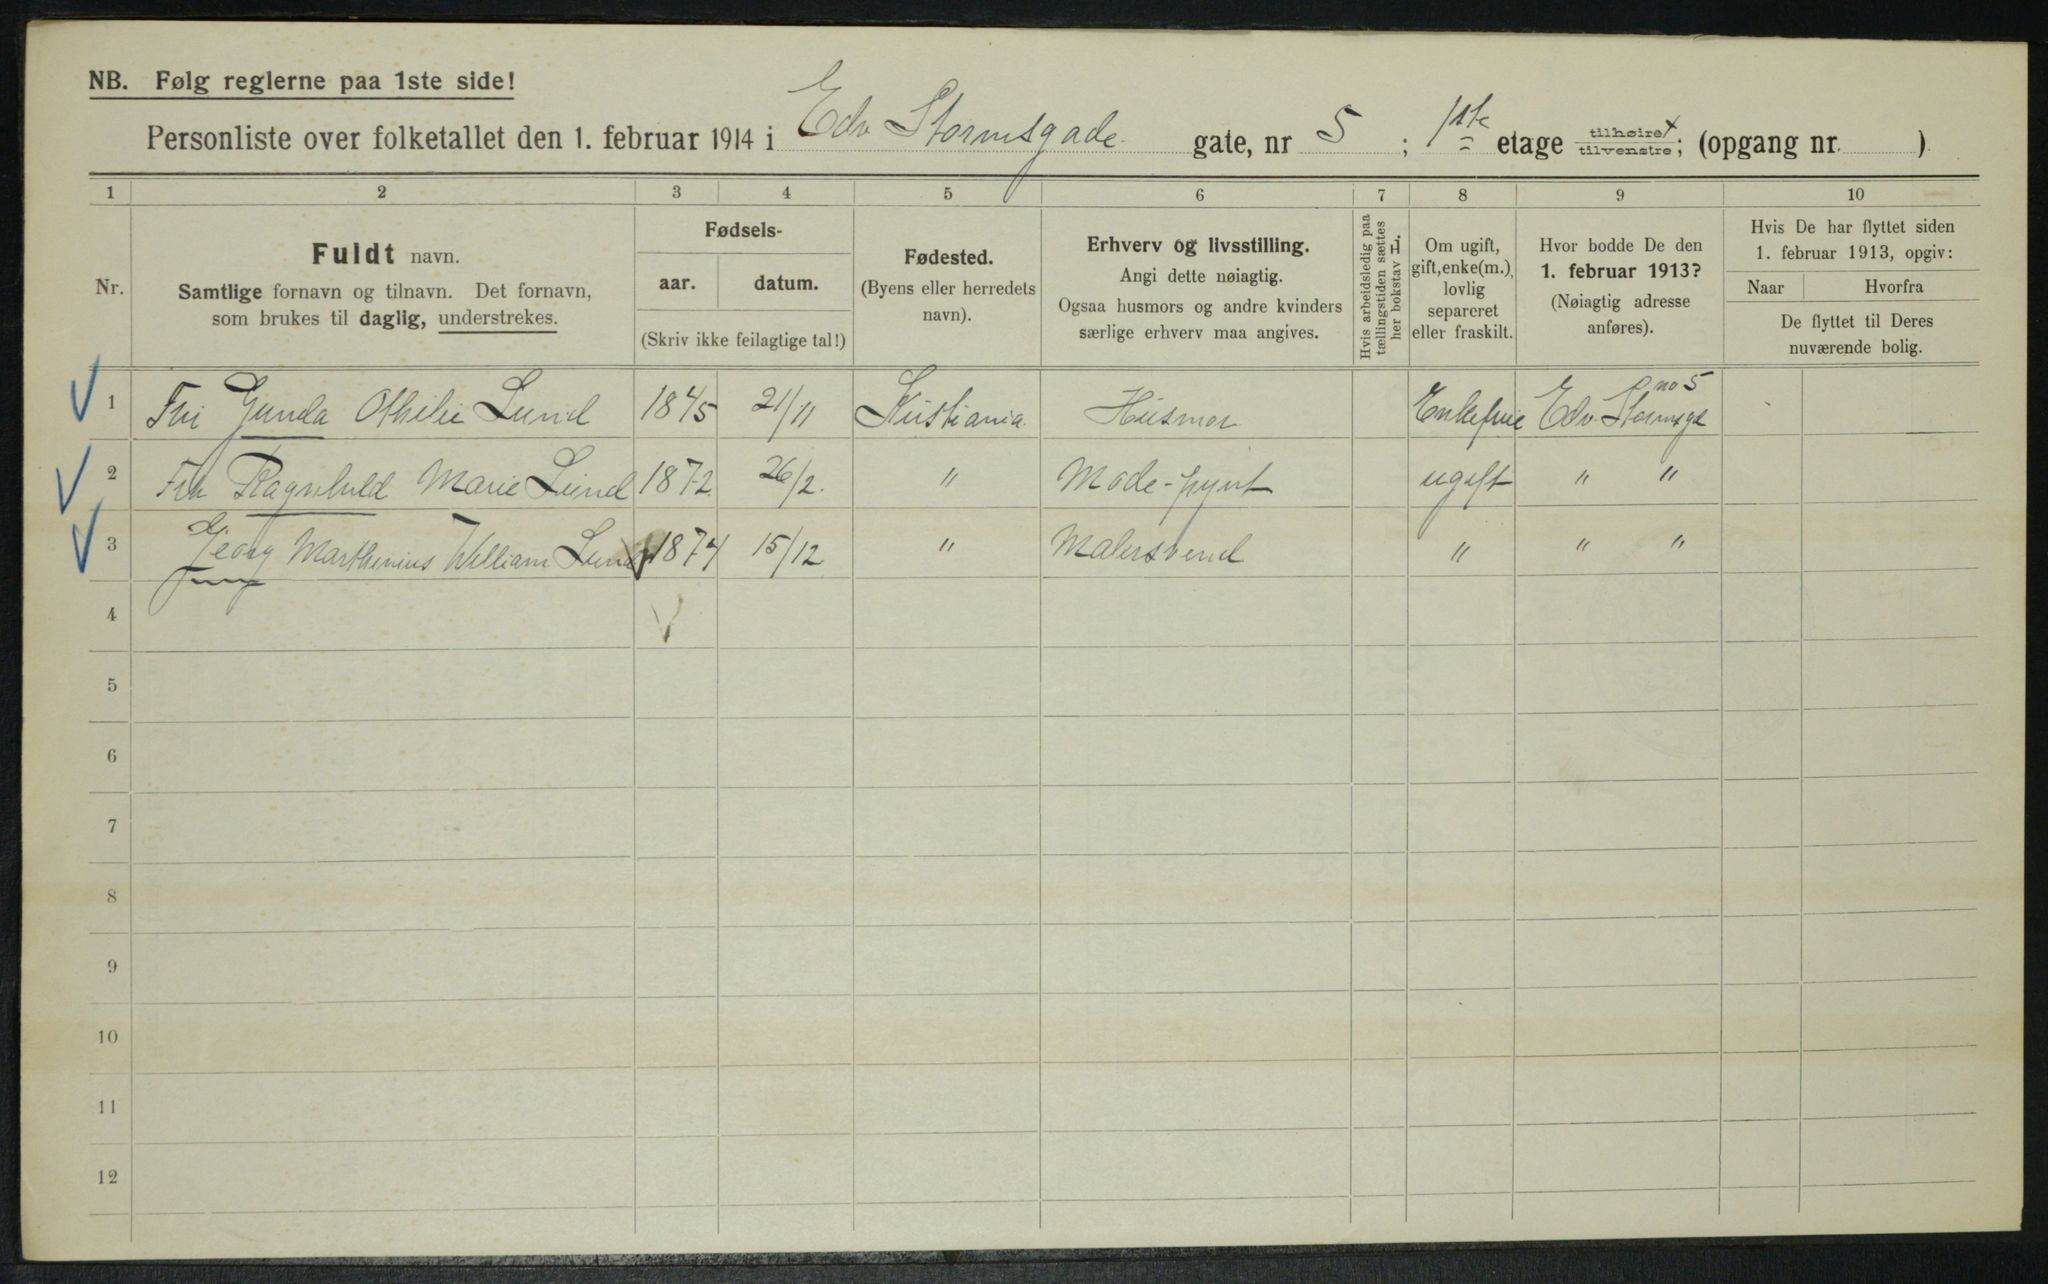 NB. Følg reglerne paa 1ste side!
Personliste over folketallet den 1. februar 1914 i Edv Stormsgade gate, nr 5 ; 1ste etage tilhøire x / tilvenstre ; (opgang nr. )
1 2 3 4 5 6 7 8 9 10
Nr.
Fuldt navn.
Samtlige fornavn og tilnavn. Det fornavn,
som brukes til daglig, understrekes.
Fødsels-
aar. datum.
(Skriv ikke feilagtige tal!)
Fødested.
(Byens eller herredets
navn).
Erhverv og livsstilling.
Angi dette nøiagtig.
Ogsaa husmors og andre kvinders
særlige erhverv maa angives.
Hvis arbeidsledig paa
tællingstiden sættes
her bokstav L.
Om ugift,
gift, enke(m.),
lovlig
separeret
eller fraskilt.
Hvor bodde De den
1. februar 1913?
(Nøiagtig adresse
anføres).
Hvis De har flyttet siden
1. februar 1913, opgiv:
Naar Hvorfra
De flyttet til Deres
nuværende bolig.
1 Gunda Othilie Lund 1845 21/11 Kristiania Husmor Enkefrue Edv. Stormsgt no 5
2 Ragnhild Marie Lund 1872 26/2 " Mode-pynt ugift " "
3 Georg Marthinius William Lund 1874 15/12 " Malersvend " " "
4
5
6
7
8
9
10
11
12